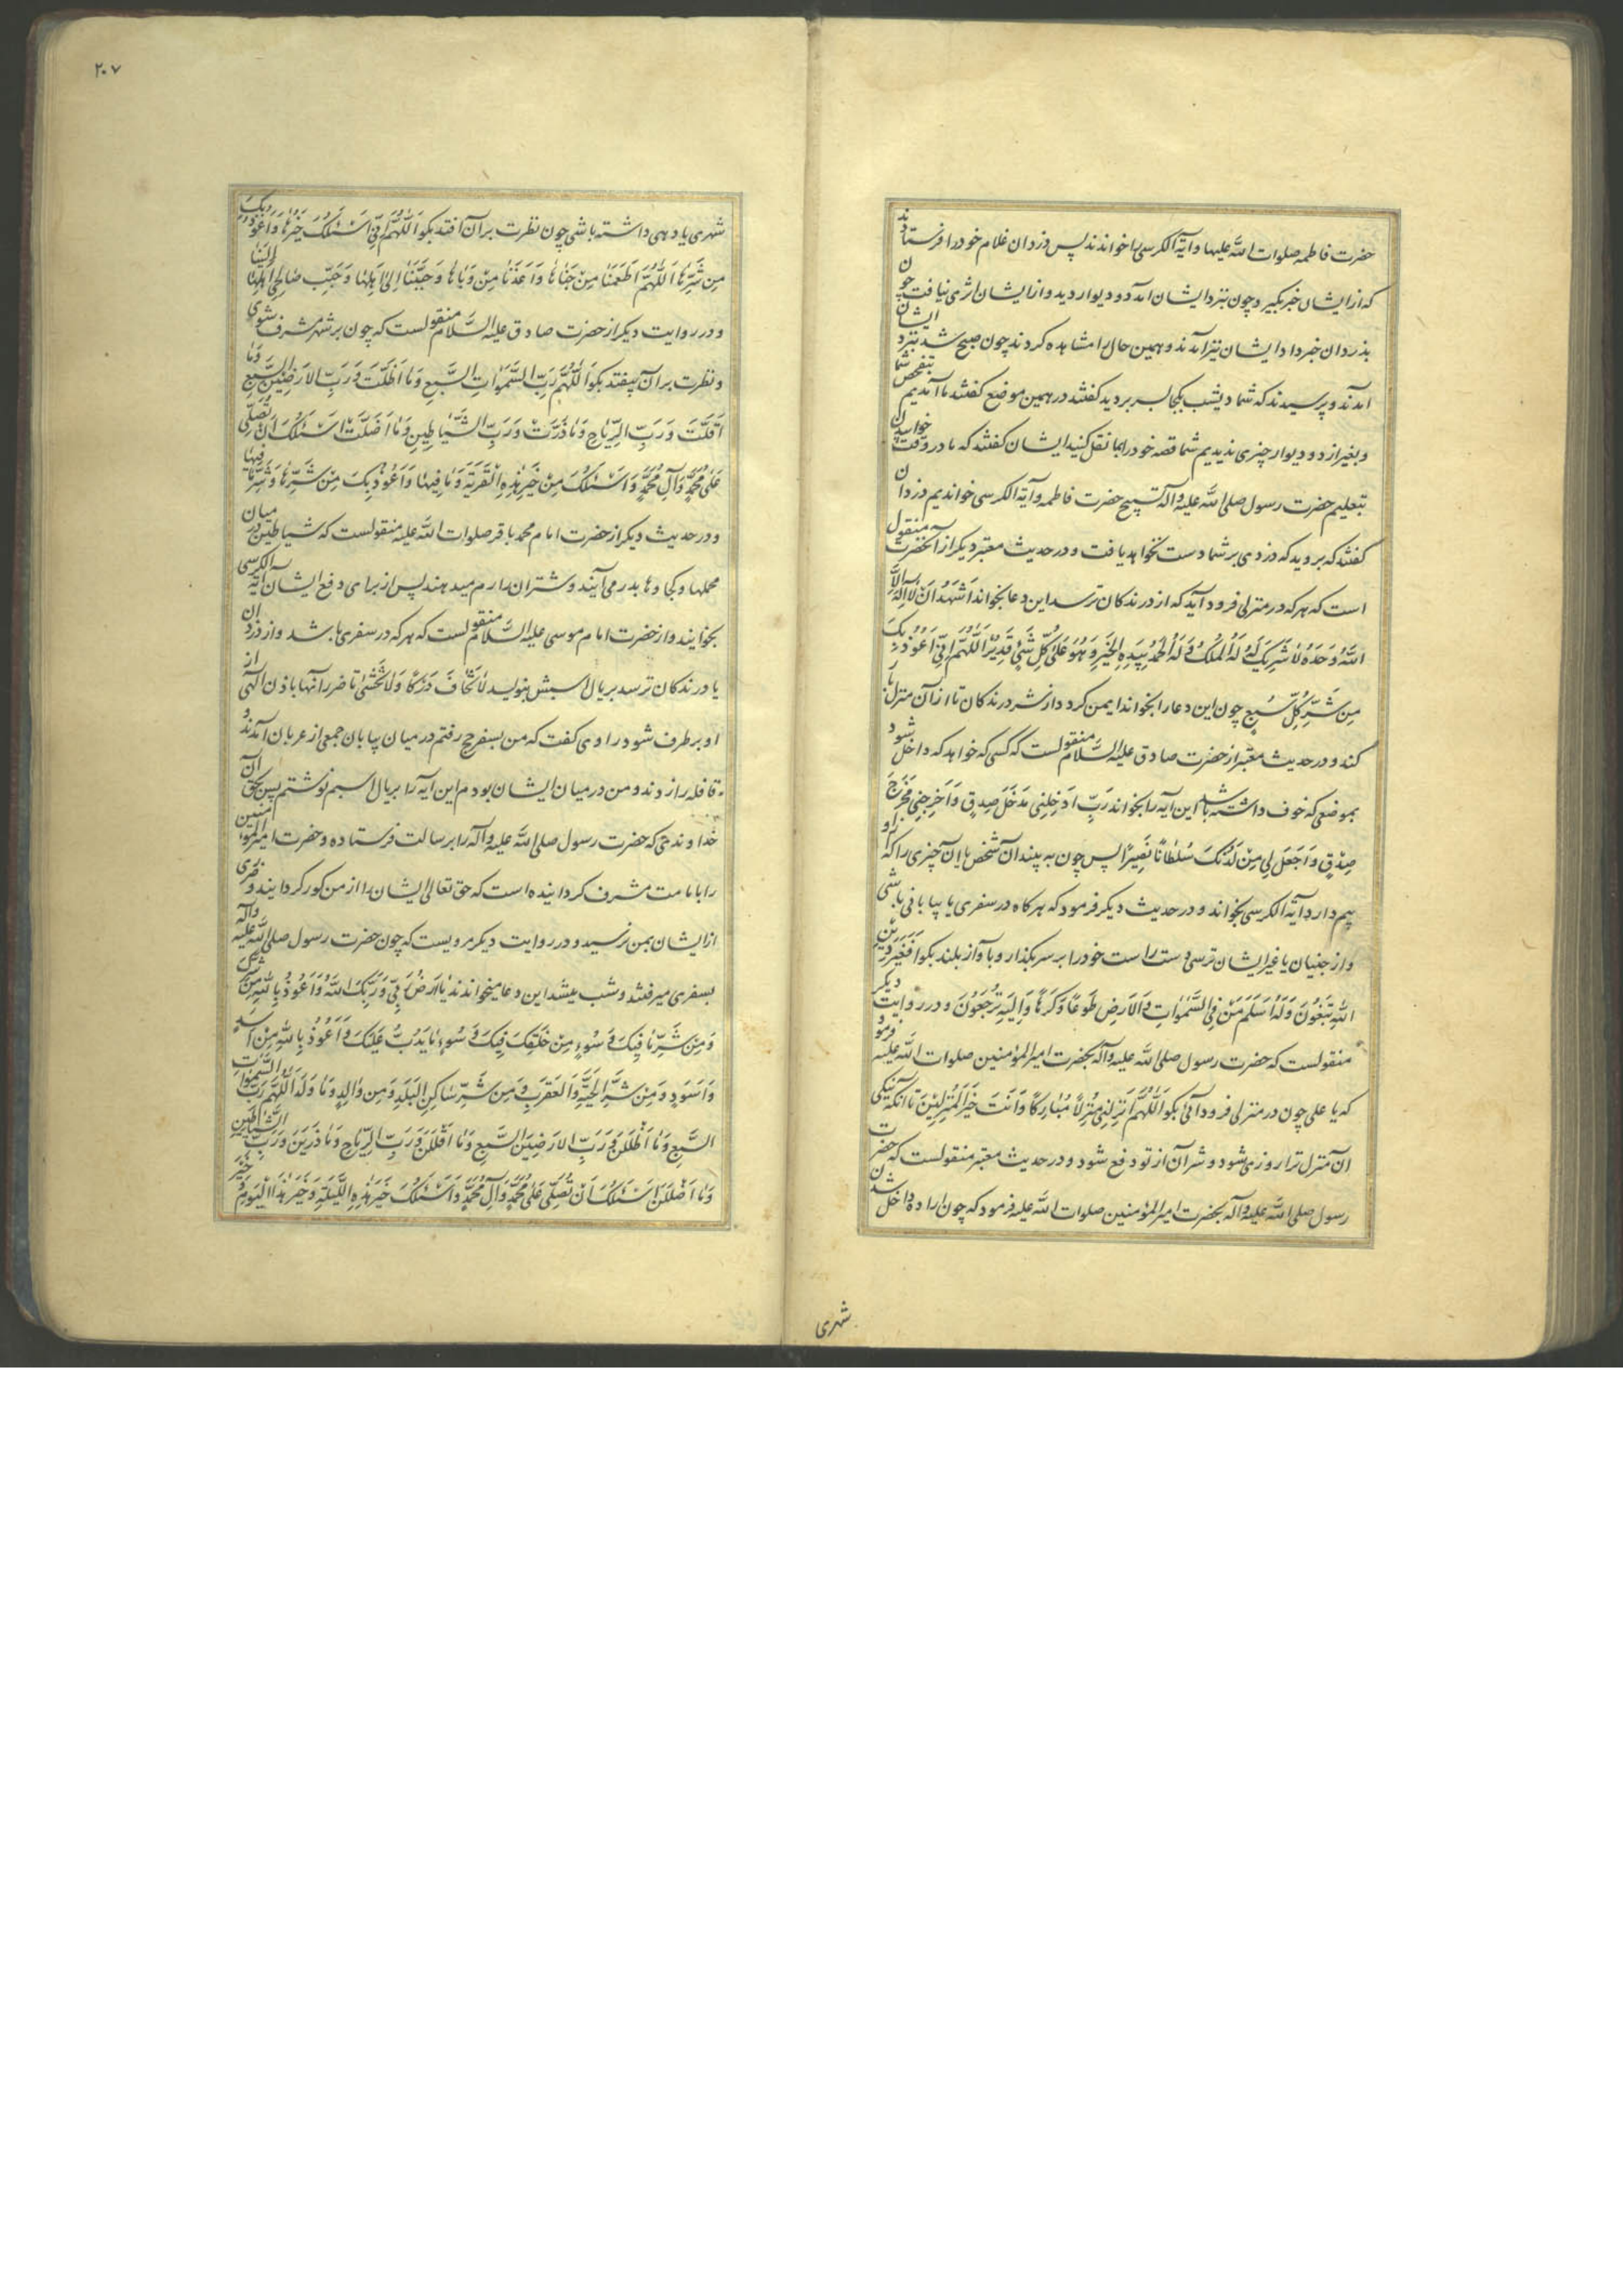 حضرت فاطمه صلوات الله علیها و آیة الکرسی را خواندند پس دزدان غلام خود را فرستادند
که از ایشان خبر بگیرد چون بنزد ایشان آمد دو دیوار دید و از ایشان اثری نیافت چون
بدزدان خبر داد ایشان نیز آمدند و همین حال را مشاهده کردند چون صبح شد بنزد ایشان
آمدند و پرسیدند که شما دیشب بکجا بسر بردید کفتند در همین موضع کفتند ما آمدیم بتفحص شما
و بغیر از دو دیوار چیزی ندیدیم شما قصه خود را بما نقل کنید ایشان کفتند که ما در وقت خوابیدن
بتعلیم حضرت رسول صلی الله علیه و اله تسبیح حضرت فاطمه و آیة الکرسی خواندیم دزدان
کفتند که بروید که دزدی بر شما دست نخواهد یافت و در حدیث معتبر دیکر از آنحضرت منقول
است که هر که در منزلی فرود آید که از درندکان ترسد این دعا بخواند اَشْهَدُ اَنْ لا اِلهَ اِلَّا
اللّهُ وَحْدَهُ لا شَریکَ لَهُ لَهُ الْمُلْکُ وَ لَهُ الْحَمْدُ بِیَدِهِ الْخَیْرُ وَ هُوَ عَلی کُلِّ شَیْءٍ قَدیرٌ اَللّهُمَّ اِنّی اَعُوذُ بِکَ
مِنْ شَرِّ کُلِّ سَبُعٍ چون این دعا را بخواند ایمن کردد از شر درندکان تا از آن منزل بار
کند و در حدیث معتبر از حضرت صادق علیه السلام منقولست که کسی که خواهد که داخل شود
بموضعی که خوف داشته باشد این آیه را بخواند رَبِّ اَدْخِلْنی مُدْخَلَ صِدْقٍ وَ اَخْرِجْنی مُخْرَجَ
صِدْقٍ وَ اجْعَلْ لی مِنْ لَدُنْکَ سُلْطاناً نَصیراً پس چون به بیند آن شخص یا آن چیزی را که از او
بیم دارد آیة الکرسی بخواند و در حدیث دیکر فرمود که هرکاه در سفری یا بیابانی باشی
و از جنیان یا غیر ایشان ترسی دست راست خود را بر سر بکذار و باواز بلند بکو اَفَغَیْرَ دینِ
اللّهِ تَبْغُونَ وَ لَهُ اَسْلَمَ مَنْ فِی السَّمواتِ وَ الْاَرْضِ طَوْعاً وَ کَرْهاً وَ اِلَیْهِ تُرْجَعُونَ و در روایت دیکر
منقولست که حضرت رسول صلی الله علیه و آله بحضرت امیر المؤمنین صلوات الله علیه فرمود
که یا علی چون در منزلی فرود آئی بکو اَللّهُمَّ اَنْزِلْنی مُنْزَلاً مُبارَکاً وَ اَنْتَ خَیْرُ الْمُنْزِلینَ تا آنکه نیکی
آن منزل ترا روزی شود و شر آن از تو دفع شود و در حدیث معتبر منقولست که حضرت
رسول صلی الله علیه و آله بحضرت امیر المؤمنین صلوات الله علیه فرمود که چون اراده داخل شدن
شهری
۲۰۷
شهری یا دهی داشته باشی چون نظرت بر آن افتد بکو اَللّهُمَّ اِنّی اَسْئَلُکَ خَیْرَها وَ اَعُوذُ بِکَ
مِنْ شَرِّها اَللّهُمَّ اَطْعِمْنا مِنْ جَناها وَ اَعِذْنا مِنْ وَباها وَ حَبِّبْنا اِلی اَهْلِها وَ حَبِّبْ صالِحی اَهْلِها اِلَیْنا
و در روایت دیکر از حضرت صادق علیه السلام منقولست که چون بر شهر مشرف شوی
و نظرت بر آن بیفتد بکو اَللّهُمَّ رَبَّ السَّمواتِ السَّبْعِ وَ ما اَظَلَّتْ وَ رَبَّ الْاَرَضینَ السَّبْعِ وَ ما
اَقَلَّتْ وَ رَبَّ الرِّیاحِ وَ ما ذَرَتْ وَ رَبَّ الشَّیاطینِ وَ ما اَضَلَّتْ اَسْئَلُکَ اَنْ تُصَلِّیَ
عَلی مُحَمَّدٍ وَ آلِ مُحَمَّدٍ وَ اَسْئَلُکَ مِنْ خَیْرِ هذِهِ الْقَرْیَةِ وَ ما فیها وَ اَعُوذُ بِکَ مِنْ شَرِّها وَ شَرِّ ما فیها
و در حدیث دیکر از حضرت امام محمد باقر صلوات الله علیه منقولست که شیاطین در میان
محملها و کجاوها بدر می آیند و شتران را رم میدهند پس از برای دفع ایشان آیة الکرسی
بخوانید و از حضرت امام موسی علیه السلام منقولست که هر که در سفری باشد و از دزدان
یا درندکان ترسد بر یال اسبش بنویسد لا تَخافُ دَرَکاً وَ لا تَخْشی تا ضرر آنها باذن الهی از
او بر طرف شود راوی کفت که من بسفر حج رفتم در میان بیابان جمعی از عربان آمدند و
قافله را زدند و من در میان ایشان بودم این آیه را بر یال اسبم نوشتم پس بحق آن
خداوندی که حضرت رسول صلی الله علیه و آله را برسالت فرستاده و حضرت امیر المؤمنین
را بامامت مشرف کردانیده است که حق تعالی ایشان را از من کور کردانید و ضرری
از ایشان بمن نرسید و در روایت دیکر مرویست که چون حضرت رسول صلی الله علیه و آله
بسفری میرفتند و شب میشد این دعا میخواندند یا اَرْضُ رَبّی وَ رَبُّکِ اللّهُ وَ اَعُوذُ بِاللّهِ مِنْ شَرِّکِ
وَ مِنْ شَرِّ ما فیکِ وَ سُوءِ مِنْ خَلْقِکَ فیکِ وَ سُوءِ ما یَدُبُّ عَلَیْکِ وَ اَعُوذُ بِاللّهِ مِنْ اَسَدٍ
وَ اَسْوَدٍ وَ مِنْ شَرِّ الْحَیَّةِ وَ الْعَقْرَبِ وَ مِنْ شَرِّ ساکِنِ الْبَلَدِ وَ مِنْ والِدٍ وَ ما وَلَدَ اَللّهُمَّ رَبَّ السَّمواتِ
السَّبْعِ وَ ما اَظْلَلْنَ وَ رَبَّ الْاَرَضینَ السَّبْعِ وَ ما اَقْلَلْنَ وَ رَبَّ الرِّیاحِ وَ ما ذَرَیْنَ وَ رَبَّ الشَّیاطینِ
وَ ما اَضْلَلْنَ اَسْئَلُکَ اَنْ تُصَلِّیَ عَلی مُحَمَّدٍ وَ آلِ مُحَمَّدٍ وَ اَسْئَلُکَ خَیْرَ هذِهِ اللَّیْلَةِ وَ خَیْرَ هذَا الْیَوْمِ وَ خَیْرَ